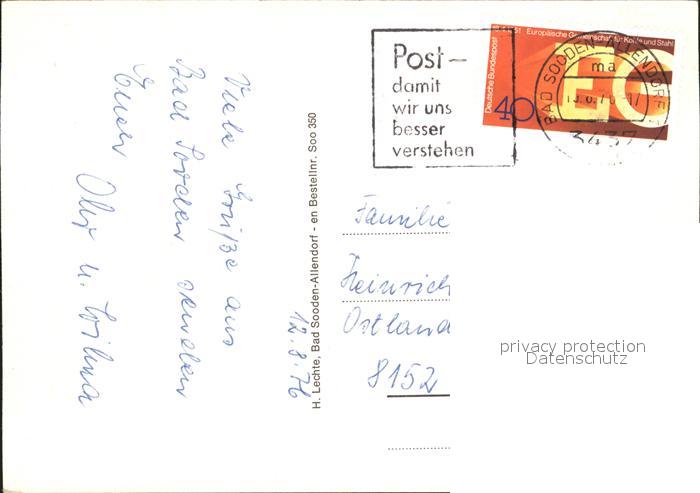 Viele Grüße aus
Bad Sooden senden
Euch
u. Wilma
12.8.76
H. Lechte, Bad Sooden-Allendorf - en Bestellnr. Soo 350
Post-
damit
wir uns
besser
verstehen
Europäische Gemeinschaft für Kohle und Stahl
Deutsche Bundespost
40
BAD SOODEN-ALLENDORF
ma
3437
Familie
Heinrich
Ostland
8152
privacy protection
Datenschutz